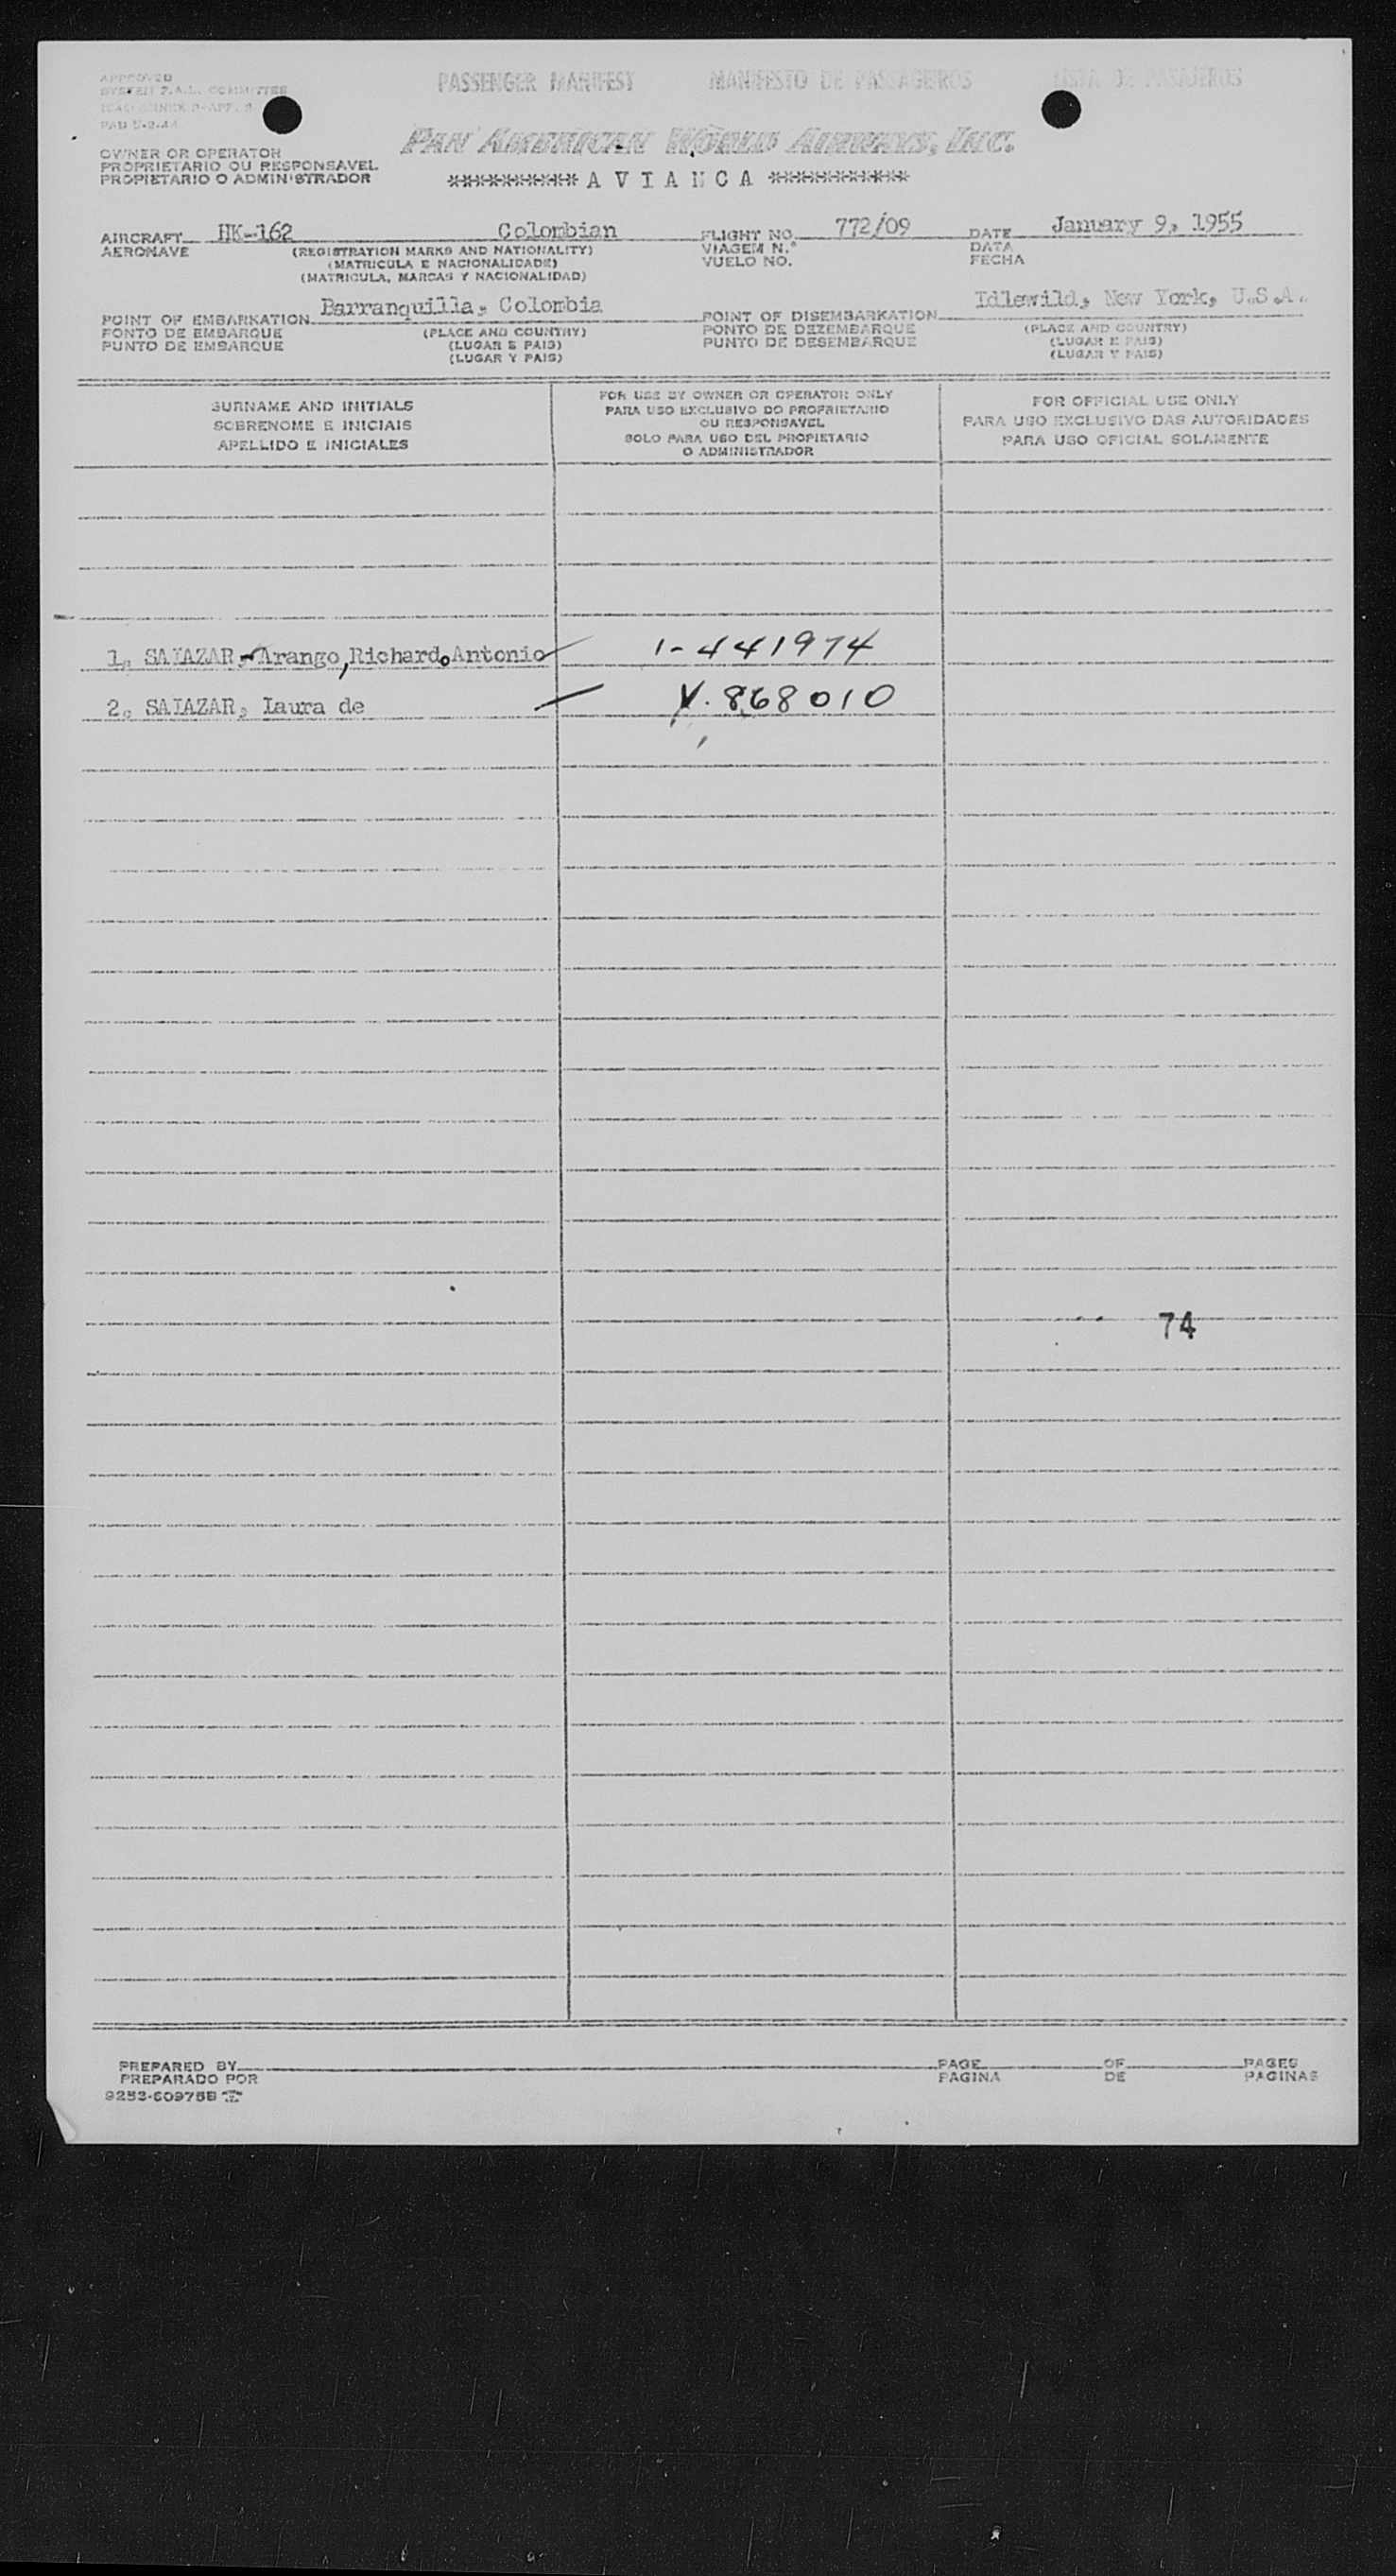 APPROVED
SYSTEM F.A.L. COMMITTEE
PASSENGER MANIFEST MANIFESTO DE PASSAGEIROS LISTA DE PASAJEROS
PAN AMERICAN WORLD AIRWAYS, INC.
OWNER OR OPERATOR
PROPRIETARIO OU RESPONSAVEL
PROPIETARIO O ADMINISTRADOR
********** AVIANCA **********
AIRCRAFT HK-162 Colombian FLIGHT NO. 772/09 DATE January 9, 1955
AERONAVE (REGISTRATION MARKS AND NATIONALITY) VIAGEM N.° DATA
(MATRICULA E NACIONALIDADE) VUELO NO. FECHA
(MATRICULA, MARCAS Y NACIONALIDAD)
POINT OF EMBARKATION Barranquilla, Colombia POINT OF DISEMBARKATION Idlewild, New York, U.S.A.
PONTO DE EMBARQUE (PLACE AND COUNTRY) PONTO DE DEZEMBARQUE (PLACE AND COUNTRY)
PUNTO DE EMBARQUE (LUGAR E PAIS) PUNTO DE DESEMBARQUE (LUGAR E PAIS)
(LUGAR Y PAIS) (LUGAR Y PAIS)
SURNAME AND INITIALS
SOBRENOME E INICIAIS
APELLIDO E INICIALES
FOR USE BY OWNER OR OPERATOR ONLY
PARA USO EXCLUSIVO DO PROPRIETARIO
OU RESPONSAVEL
SOLO PARA USO DEL PROPIETARIO
O ADMINISTRADOR
FOR OFFICIAL USE ONLY
PARA USO EXCLUSIVO DAS AUTORIDADES
PARA USO OFICIAL SOLAMENTE
1. SALAZAR-Arango, Richardo Antonio 1-441974
2. SALAZAR, Laura de V. 868010
74
PREPARED BY PAGE OF PAGES
PREPARADO POR PAGINA DE PAGINAS
9252-60975B